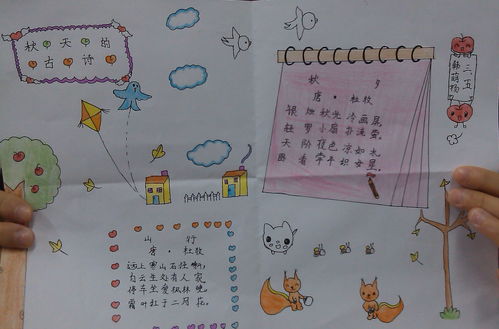 秋天的
古诗
秋夕
唐·杜牧
银烛秋光冷画屏
轻罗小扇扑流萤。
天阶夜色凉如水
卧看牵牛织女星。
三五
韩萌杨
山行
唐·杜牧
远上寒山石径斜,
白云生处有人家
停车坐爱枫林晚,
霜叶红于二月花。